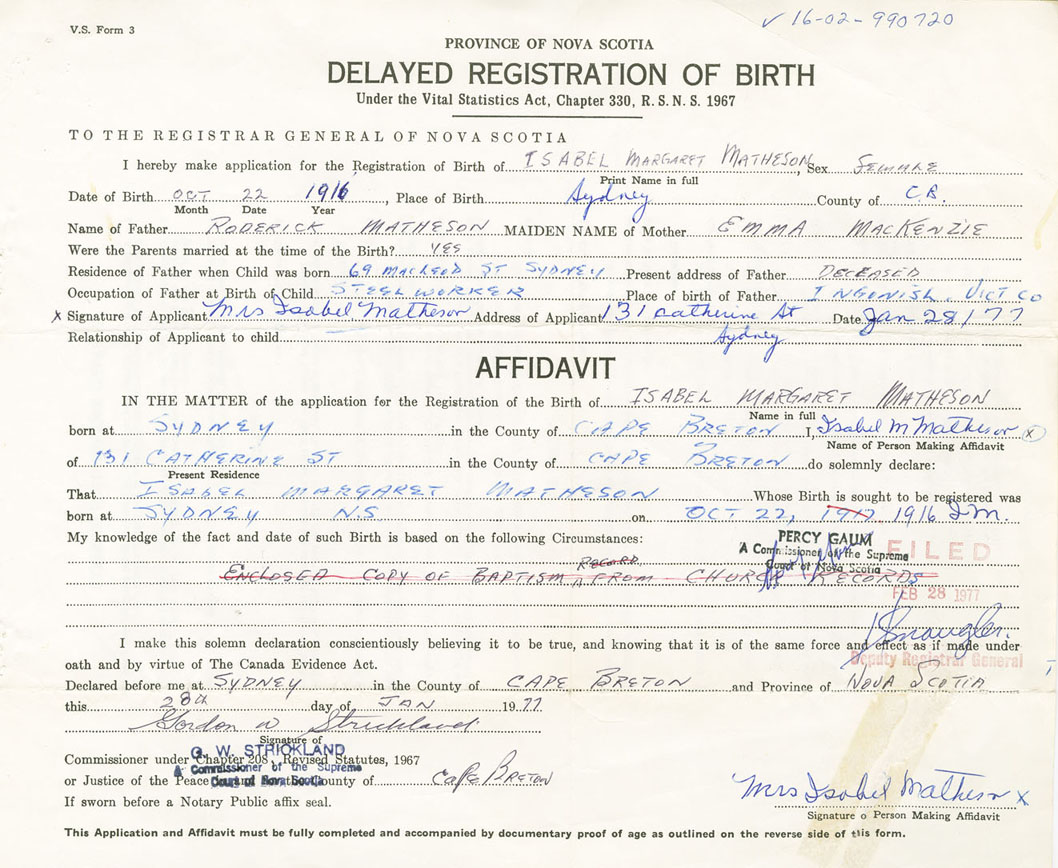 V.S. Form 3
✓ 16-02-990720
PROVINCE OF NOVA SCOTIA
DELAYED REGISTRATION OF BIRTH
Under the Vital Statistics Act, Chapter 330, R.S.N.S. 1967
TO THE REGISTRAR GENERAL OF NOVA SCOTIA
I hereby make application for the Registration of Birth of ISABEL MARGARET MATHESON, Sex FEMALE
Print Name in full
Date of Birth OCT 22 1916, Place of Birth Sydney County of C.B.
Month Date Year
Name of Father RODERICK MATHESON MAIDEN NAME of Mother EMMA MACKENZIE
Were the Parents married at the time of the Birth? YES
Residence of Father when Child was born 69 MACLEOD ST SYDNEY Present address of Father DECEASED
Occupation of Father at Birth of Child STEELWORKER Place of birth of Father INGONISH. VICT CO
X Signature of Applicant Mrs Isabel Matheson Address of Applicant 131 Catherine St Date Jan 28/77
Relationship of Applicant to child Sydney
AFFIDAVIT
IN THE MATTER of the application for the Registration of the Birth of ISABEL MARGARET MATHESON
Name in full
born at SYDNEY in the County of CAPE BRETON I, Isabel M Matheson X
Name of Person Making Affidavit
of 131 CATHERINE ST in the County of CAPE BRETON do solemnly declare:
Present Residence
That ISABEL MARGARET MATHESON Whose Birth is sought to be registered was
born at SYDNEY N.S. on OCT 22, 1917 1916 I.M.
My knowledge of the fact and date of such Birth is based on the following Circumstances:
PERCY GAUM
A Commissioner of the Supreme
Court of Nova Scotia
FILED
RECORD
ENCLOSED COPY OF BAPTISM FROM CHURCH RECORDS
FEB 28 1977
I make this solemn declaration conscientiously believing it to be true, and knowing that it is of the same force and effect as if made under
oath and by virtue of The Canada Evidence Act.
Deputy Registrar General
Declared before me at SYDNEY in the County of CAPE BRETON and Province of NOVA SCOTIA
this 28th day of JAN 1977
Gordon W Strickland
Signature of
Commissioner under Chapter 208, Revised Statutes, 1967
G. W. STRICKLAND
A Commissioner of the Supreme
Court of Nova Scotia
or Justice of the Peace County of CAPE BRETON
If sworn before a Notary Public affix seal.
Mrs Isabel Matheson X
Signature o Person Making Affidavit
This Application and Affidavit must be fully completed and accompanied by documentary proof of age as outlined on the reverse side of this form.